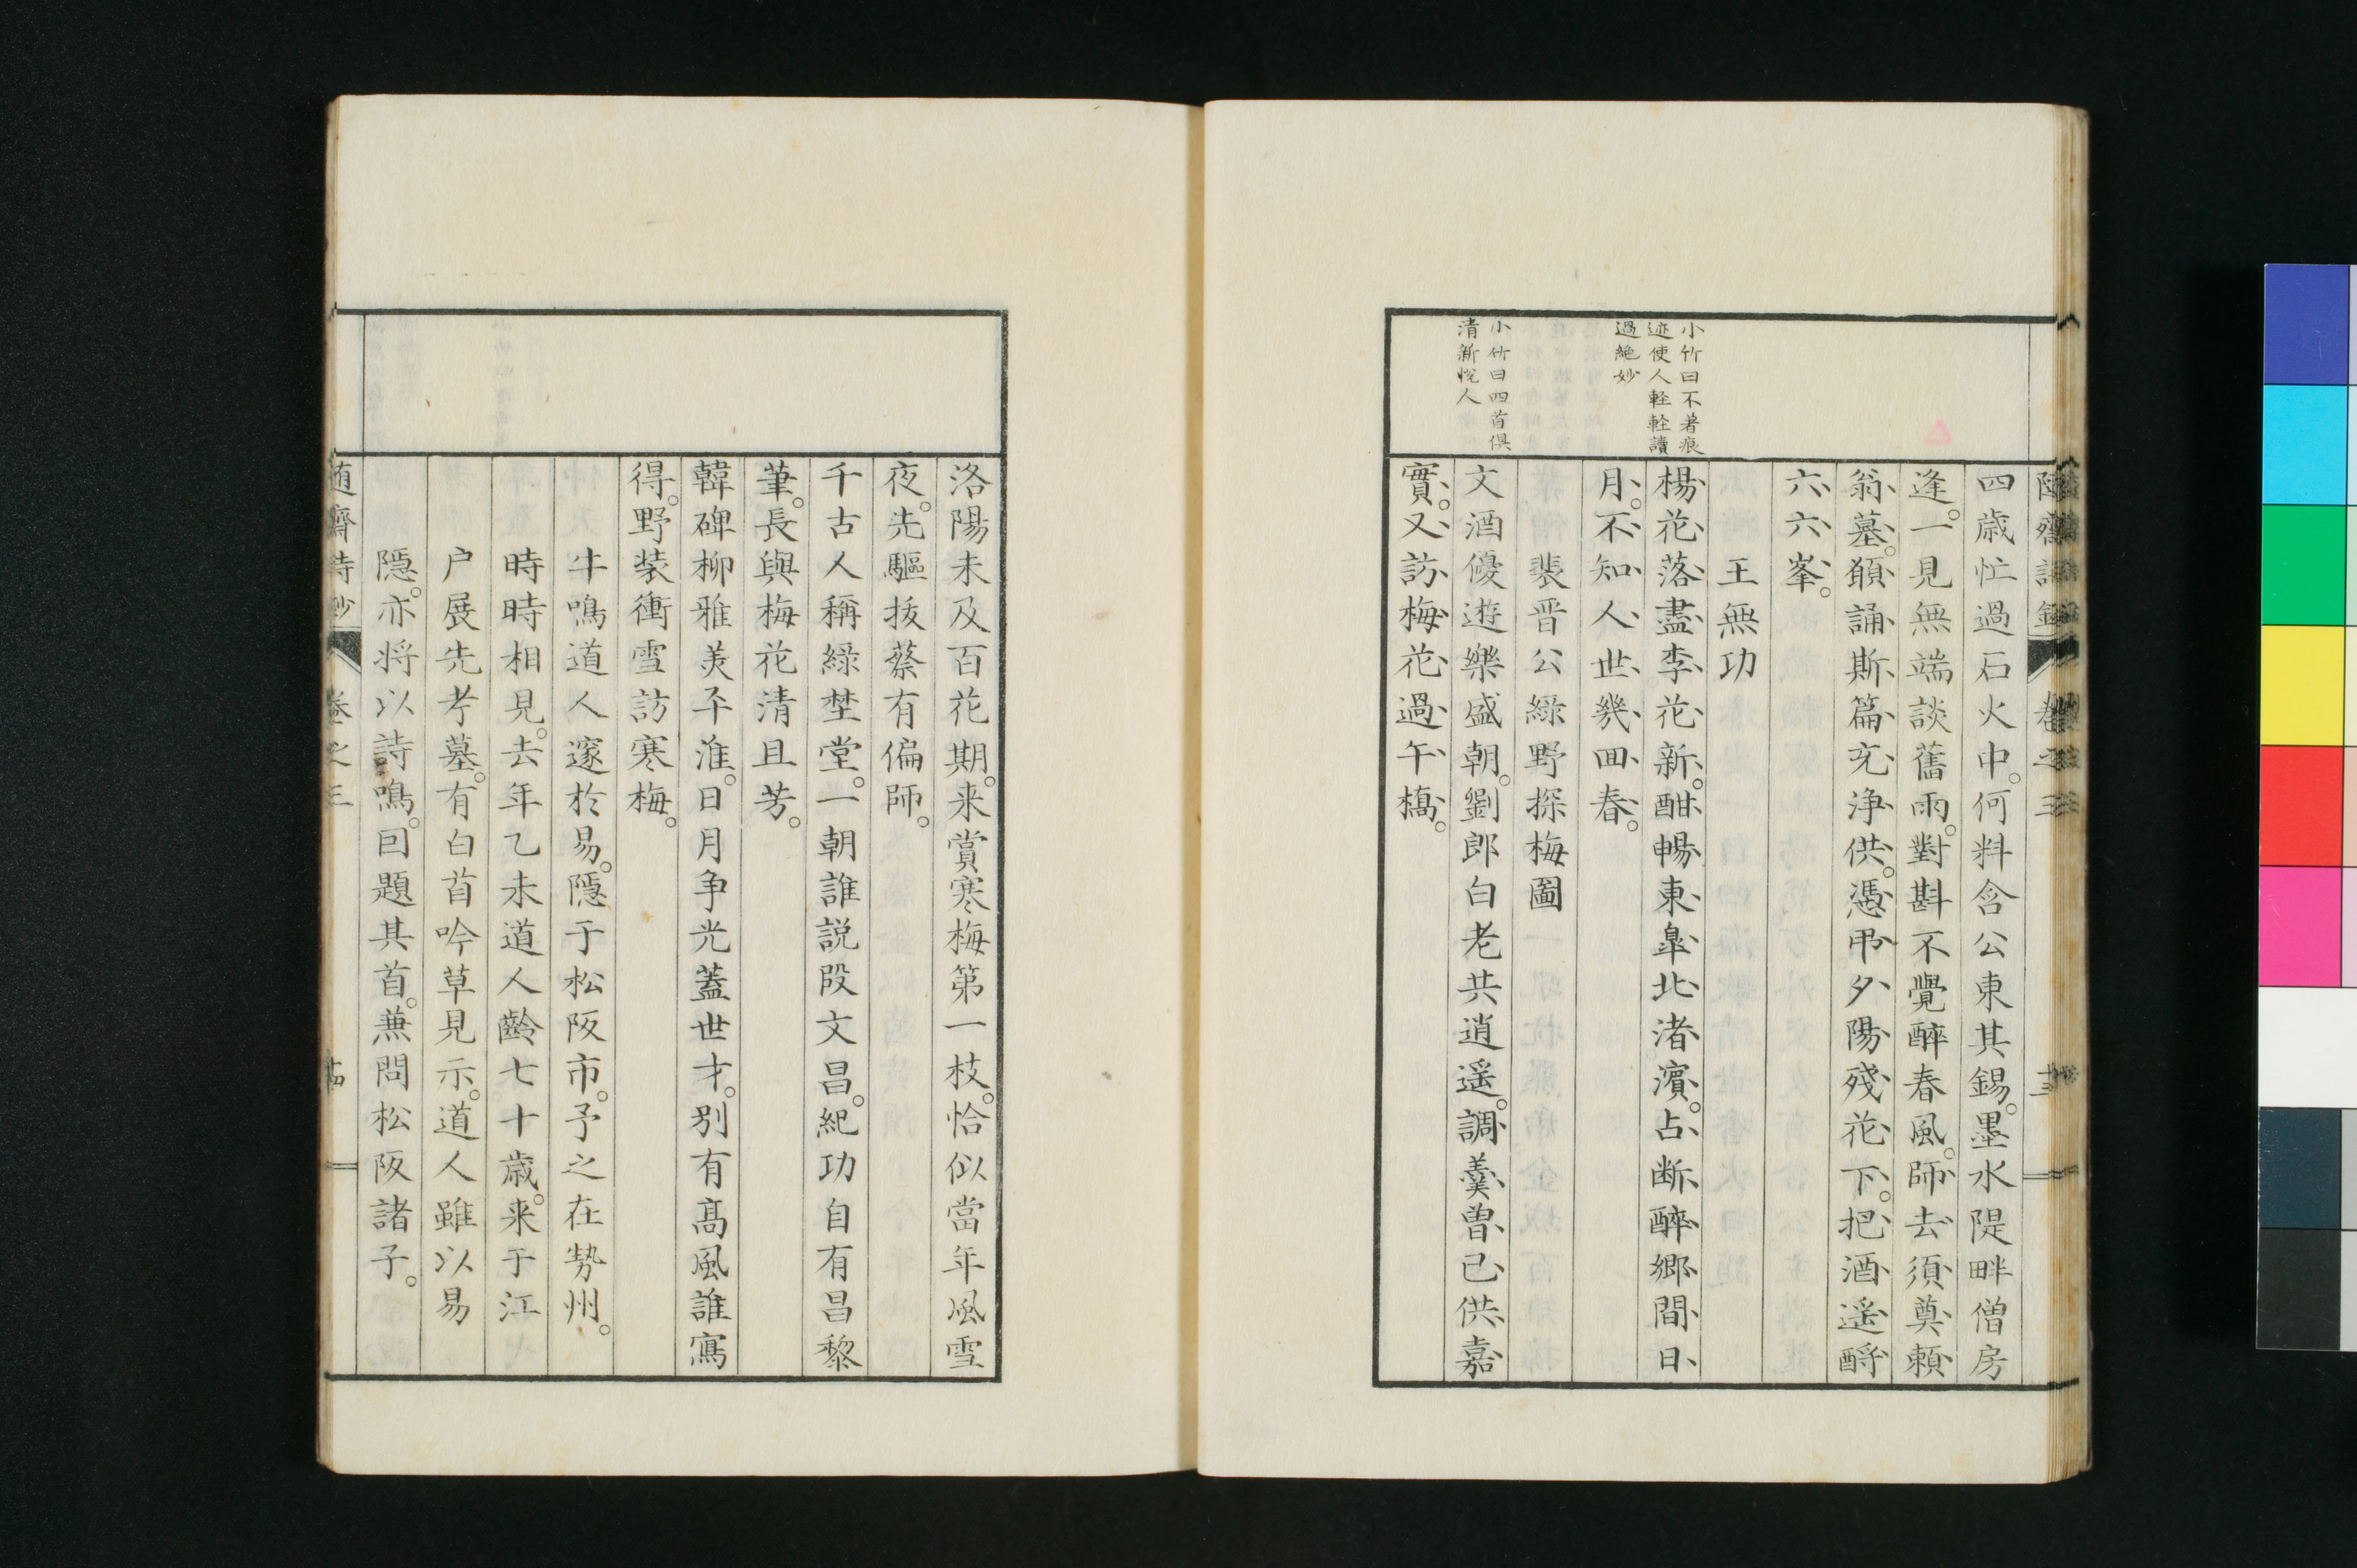 小竹曰不著痕
迹使人輕輕讀
過絶妙
小竹曰四首倶
清新悅人
四歳忙過石火中。何料含公東其錫。墨水隄畔僧房
逢。一見無端談舊雨。對斟不覺醉春風。師去須奠頼
翁墓。額誦斯篇充浄供。憑弔夕陽殘花下。把酒遥酹
六六峯。
王無功
楊花落盡李花新。酣暢東皐北渚濵。占断醉郷間日
月。不知人世幾回春。
裴晋公緑野探梅圖
文酒優遊樂盛朝。劉郎白老共逍遥。調羹曽已供嘉
實。又訪梅花過午橋。
洛陽未及百花期。来賞寒梅第一枝。恰似當年風雪
夜。先驅抜蔡有偏師。
千古人稱緑埜堂。一朝誰説段文昌。紀功自有昌黎
筆。長與梅花清且芳。
韓碑柳雅美平淮。日月争光蓋世才。別有髙風誰寫
得。野装衝雪訪寒梅。
牛鳴道人邃於易。隱于松阪市。予之在勢州。
時時相見。去年乙未道人齡七十歳。来于江
户展先考墓。有白首吟草見示。道人雖以易
隱。亦将以詩鳴。囙題其首。蕪問松阪諸子。
卷之三